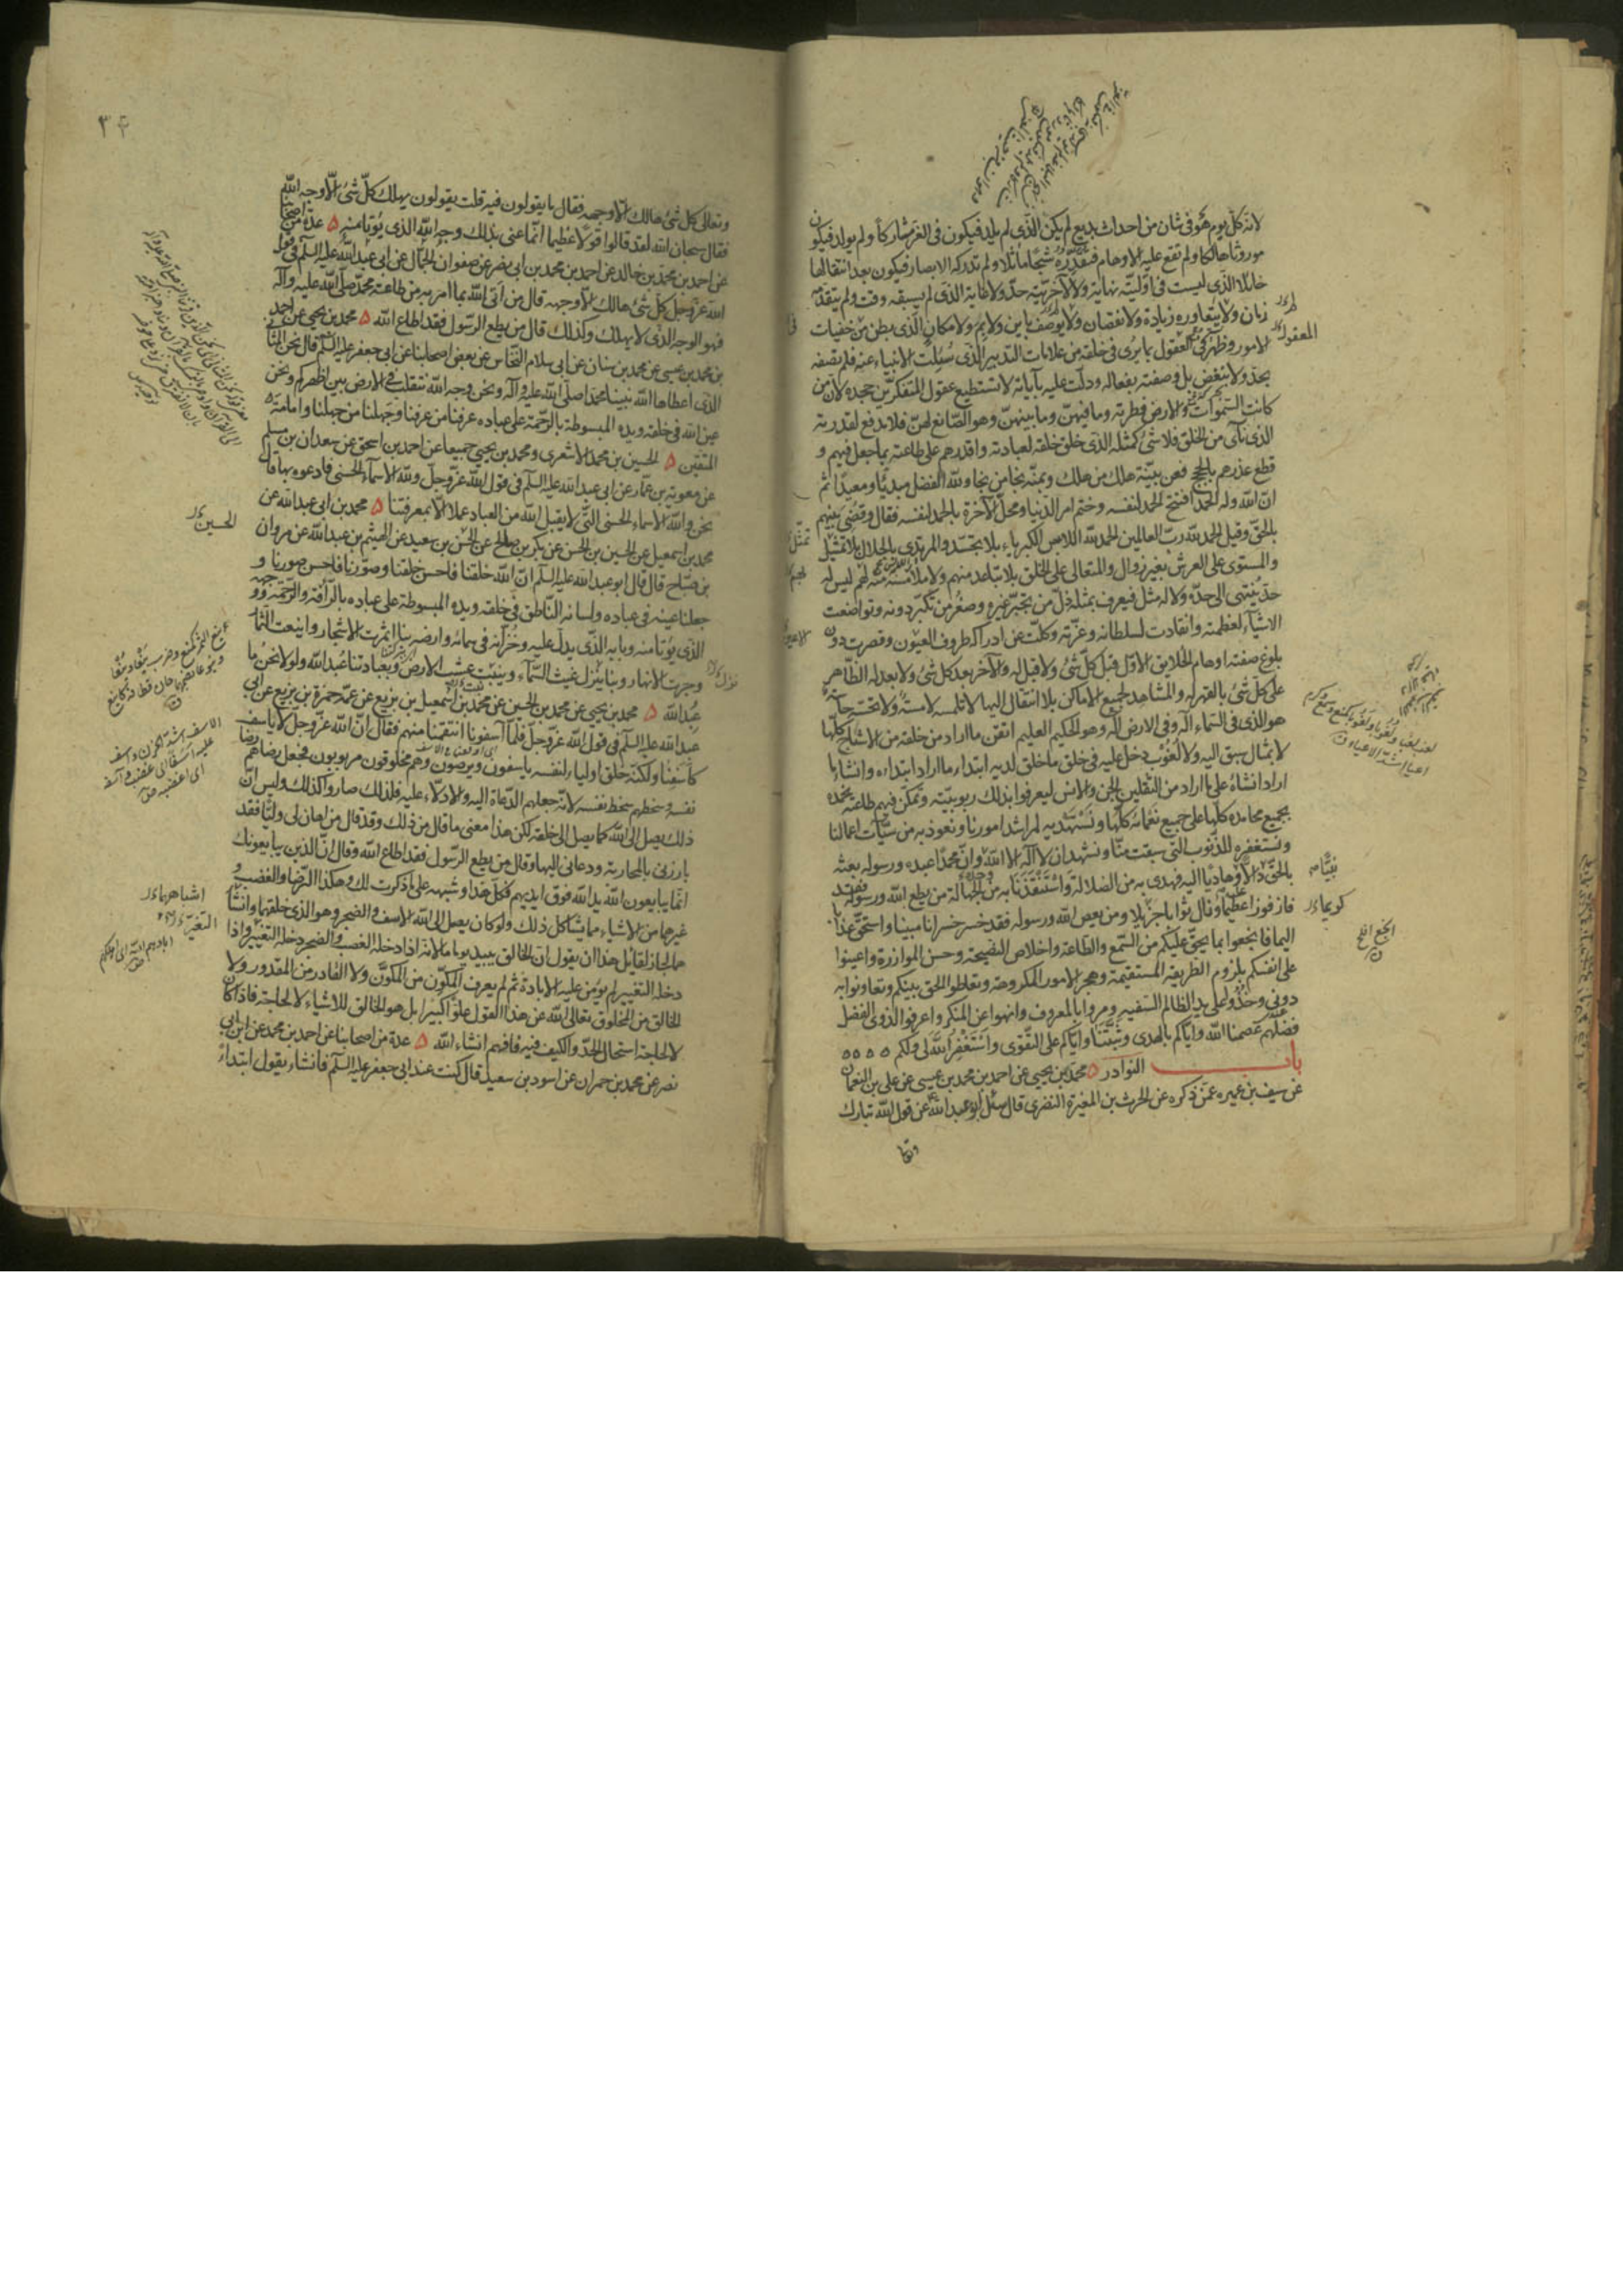 لانه كلّ يوم هو فى شان من احداث بديع لم يكن الّذى لم يلد فيكون فى العزّ مشاركاً ولم يولد فيكون
موروثا هالكا ولم تقع عليه الاوهام فتقدّره شبحاً ماثلا ولم تدركه الابصار فيكون بعد انتقالها
حائلا الّذى ليست فى اوّليّته نهاية ولا لآخريّته حدّ ولا غاية الذى لم يسبقه وقت ولم يتقدّمه
زمان ولا يتعاوره زيادة ولا نقصان ولا يوصف باين ولا بم ولا مكان الّذى بطن من خفيات
الامور وظهر فى العقول بما يرى فى خلقه من علامات التدبير الّذى سئلت الانبياء عنه فلم تصفه
بحدّ ولا ببعض بل وصفته بفعاله ودلّت عليه بآياته لا تستطيع عقول المتفكرين جحده لانّ من
كانت السّموات والارض فطرته وما فيهنّ وما بينهنّ وهو الصّانع لهنّ فلا مدفع لقدرته
الذى نأى من الخلق فلا شئ كمثله الذى خلق خلقه لعبادته واقدرهم على طاعته بما جعل فيهم و
قطع عذرهم بالحجج فعن بيّنة هلك من هلك وبمنّه نجا من نجا ولله الفضل مبدئاً ومعيداً ثم
انّ الله وله الحمد افتتح الحمد لنفسه وختم امر الدنيا ومحلّ الآخرة بالحمد لنفسه فقال وقضى بينهم
بالحقّ وقيل الحمد لله ربّ العالمين الحمد لله اللابس الكبرياء بلا تجسّد والمرتدى بالجلال بلا تمثيل
والمستوى على العرش بغير زوال والمتعالى على الخلق بلا تباعد منهم ولا ملامسة منه لهم ليس له
حدّ ينتهى الى حدّه ولا له مثل فيعرف بمثله ذلّ من تجبّر غيره وصغر من تكبّر دونه وتواضعت
الاشياء لعظمته وانقادت لسلطانه وعزّته وكلّت عن ادراكه طروف العيون وقصرت دون
بلوغ صفته اوهام الخلايق الاوّل قبل كلّ شئ ولا قبل له والآخر بعد كل شئ ولا بعد له الظّاهر
على كلّ شئ بالقهر له والمشاهد لجميع الاماكن بلا انتقال اليها لا تلمسه لامسة ولا تحسّه حاسّة
هو الذى فى السّماء اله وفى الارض اله وهو الحكيم العليم اتقن ما اراد من خلقه من الاشباح كلّها
لا بمثال سبق اليه ولا لغوب دخل عليه فى خلق ما خلق لديه ابتدء ما اراد ابتداءه وانشاء ما
اراد انشاءه على ما اراد من الثقلين الجن والانس ليعرفوا بذلك ربوبيّته وتمكّن فيهم طاعته نحمده
بجميع محامده كلّها على جميع نعمائه كلّها ونستهديه لمراشد امورنا ونعوذ به من سيّئات اعمالنا
ونستغفره للذّنوب التى سبقت منّا ونشهد ان لا اله الا الله وانّ محمدًا عبده ورسوله بعثه
بالحقّ دالاً وهاديا اليه فهدى به من الضلالة واستنقذنا به من الجهالة من يطع الله ورسوله فقد
فاز فوزا عظيماً ونال ثوابا جزيلا ومن يعص الله ورسوله فقد خسر خسرانا مبينا واستحقّ عذابا
اليما فانجعوا بما يحقّ عليكم من السّمع والطّاعة واخلاص النصيحة وحسن الموازرة واعينوا
على انفسكم بلزوم الطريقة المستقيمة وهجر الامور المكروهة وتعاطوا الحق بينكم وتعاونوا به
دونى وخذوا على يد الظالم السّفيه ومروا بالمعروف وانهوا عن المنكر واعرفوا لذوى الفضل
فضلهم عصمنا الله واياكم بالهدى وثبّتنا واياكم على التّقوى واستغفر الله لى ولكم
باب النوادر محمد بن يحيى عن احمد بن محمد بن عيسى عن على بن النعمان
عن سيف بن عميره عمّن ذكره عن الحرث بن المغيرة النضرى قال سئل ابو عبد الله عن قول الله تبارك
وتعا
المعقول
تمثّل
نبيّا
كريما
انجع
٣٤
وتعالى كل شئ هالك الّا وجهه فقال ما يقولون فيه قلت يقولون يهلك كلّ شئ الّا وجه الله
فقال سبحان الله لقد قالوا قولا عظيما انّما عنى بذلك وجه الله الذى يؤتا منه عدة من اصحابنا
عن احمد بن محمد بن خالد عن احمد بن محمد بن ابى نصر عن صفوان الجمّال عن ابى عبد الله عليه السلم فى قول
الله عزّ وجلّ كلّ شئ هالك الّا وجهه قال من اتى الله بما امر به من طاعة محمّد صلّى الله عليه وآله
فهو الوجه الّذى لا يهلك وكذلك قال من يطع الرّسول فقد اطاع الله محمد بن يحيى عن احمد
بن محمد بن عيسى عن محمد بن سنان عن ابى سلام النحّاس عن بعض اصحابنا عن ابى جعفر عليه السلم قال نحن المثانى
الذى اعطاها الله نبينا محمدا صلّى الله عليه وآله ونحن وجه الله نتقلب فى الارض بين اظهركم ونحن
عين الله فى خلقه ويده المبسوطة بالرّحمة على عباده عرفنا من عرفنا وجهلنا من جهلنا وامامة
المتقين الحسين بن محمد الاشعرى ومحمد بن يحيى جميعا عن احمد بن اسحق عن سعدان بن مسلم
عن معوية بن عمار عن ابى عبد الله عليه السلم فى قول الله عزّ وجلّ ولله الاسماء الحسنى فادعوه بها قال
نحن والله الاسماء الحسنى التى لا يقبل الله من العباد عملا الّا بمعرفتنا محمد بن ابى عبد الله عن
محمد بن اسمعيل عن الحسين بن الحسن عن بكر بن صالح عن الحسن بن سعيد عن الهيثم بن عبد الله عن مروان
بن صبّاح قال قال ابو عبد الله عليه السلم انّ الله خلقنا فاحسن خلقنا وصوّرنا فاحسن صورنا و
جعلنا عينه فى عباده ولسانه النّاطق فى خلقه ويده المبسوطة على عباده بالرّأفة والرّحمة ووجهه
الّذى يؤتا منه وبابه الّذى يدلّ عليه وخزّانه فى سمائه وارضه بنا اثمرت الاشجار واينعت الثمار
وجرت الانهار وبنا ينزل غيث السّماء وينبت عشب الارض وبعبادتنا عبد الله ولولا نحن ما
عبد الله محمد بن يحيى عن محمد بن الحسين عن محمد بن اسمعيل بن بزيع عن عمّه حمزة بن بزيع عن ابى
عبد الله عليه السلم فى قول الله عزّ وجلّ فلمّا آسفونا انتقمنا منهم فقال انّ الله عزّ وجلّ لا ياسف
كأسفنا ولكنّه خلق اولياء لنفسه ياسفون ويرضون وهم مخلوقون مربوبون فجعل رضاهم رضا
نفسه وسخطهم سخط نفسه لانّه جعلهم الدّعاة اليه والادلّاء عليه فلذلك صاروا كذلك وليس انّ
ذلك يصل الى الله كما يصل الى خلقه لكن هذا معنى ما قال من ذلك وقد قال من اهان لى وليّا فقد
بارزنى بالمحاربة ودعانى اليها وقال من يطع الرّسول فقد اطاع الله وقال انّ الّذين يبايعونك
انّما يبايعون الله يد الله فوق ايديهم فكلّ هذا وشبهه على ما ذكرت لك وهكذا الرّضا والغضب و
غيرهما من الاشياء مما يشاكل ذلك ولو كان يصل الى الله الاسف والضجر وهو الذى خلقهما وانشأ
هما لجاز لقائل هذا ان يقول ان الخالق يبيد يوما ما لانّه اذا دخله الغضب والضجر دخله التغيير واذا
دخله التغيير لم يؤمن عليه الابادة ثم لم يعرف المكوِّن من المكوَّن ولا القادر من المقدور ولا
الخالق من المخلوق تعالى الله عن هذا القول علوّا كبيرا بل هو الخالق للاشياء لا لحاجة فاذا كان
لا لحاجة استحال الحدّ والكيف فيه فافهم انشاء الله عدة من اصحابنا عن احمد بن محمد عن ابن ابى
نصر عن محمد بن حمران عن اسود بن سعيد قال كنت عند ابى جعفر عليه السلم فانشاء يقول ابتداءً
الحسين